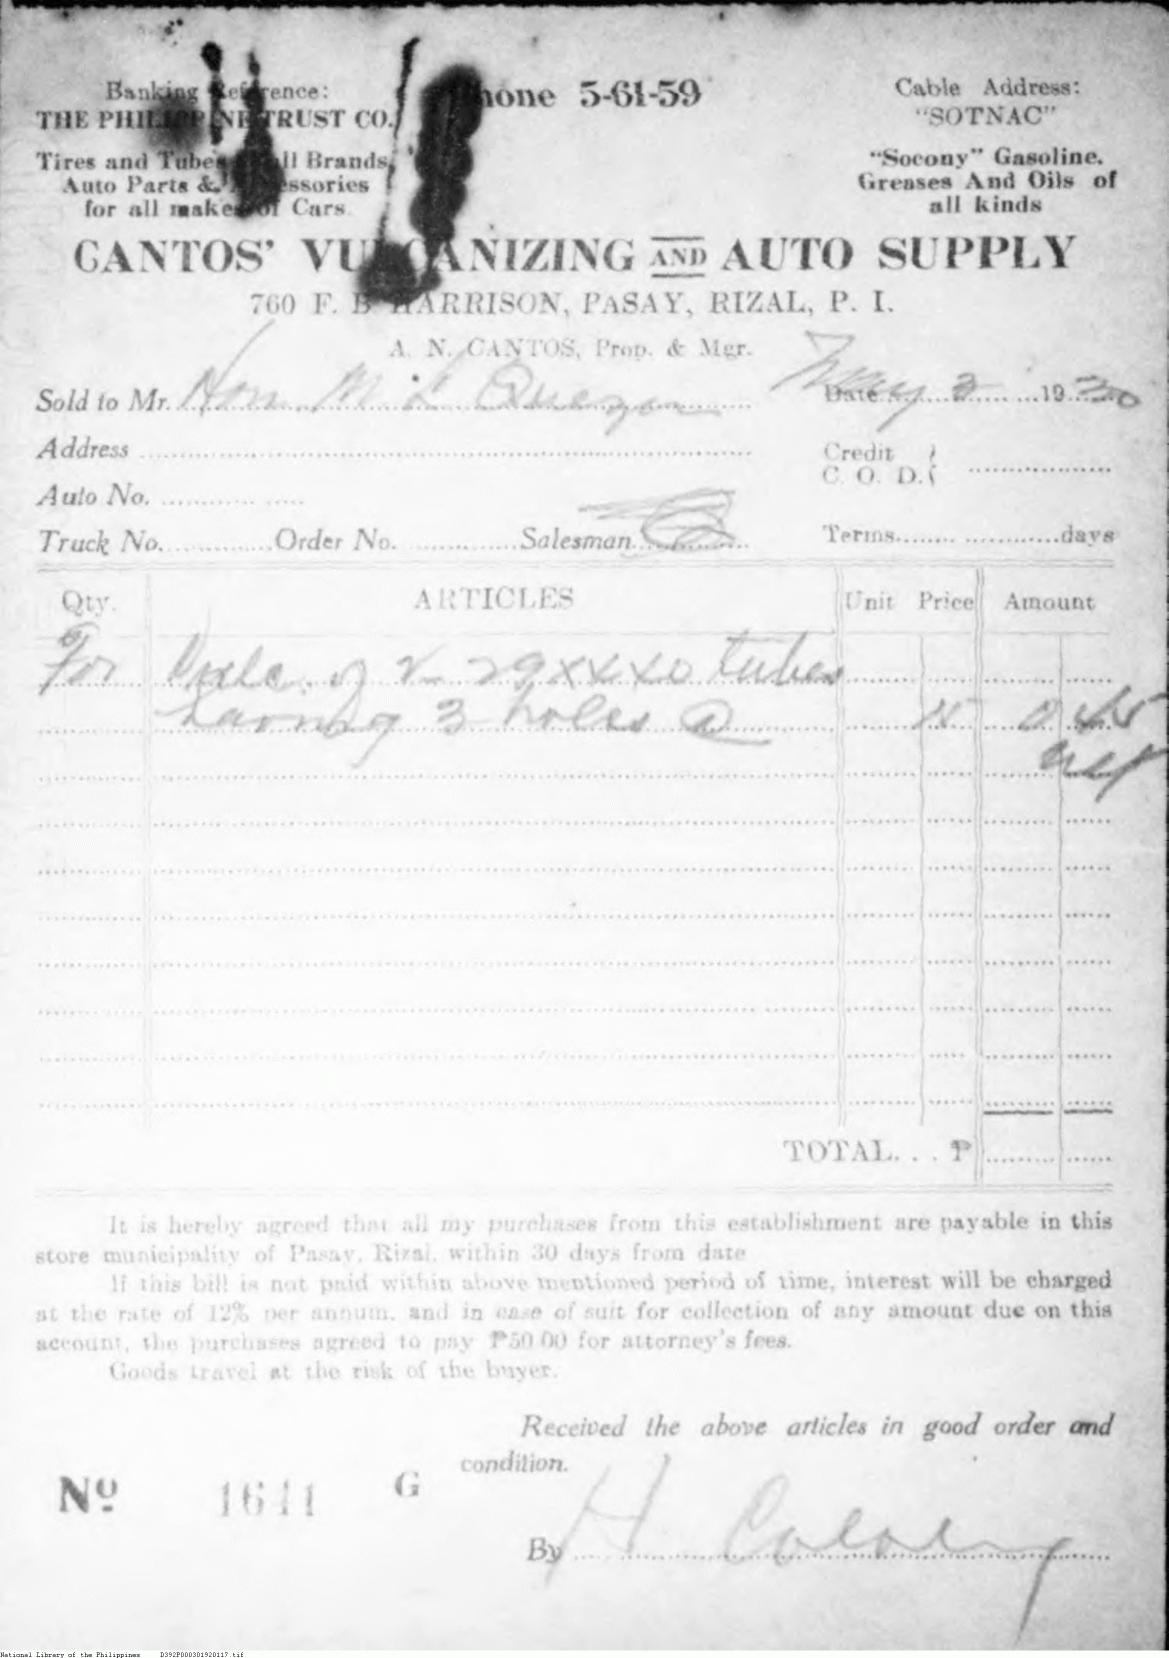 Banking Reference:
THE PHILIPPINE TRUST CO.
Tires and Tubes all Brands,
Auto Parts & Accessories
for all makes of Cars
Phone 5-61-59
Cable Address:
"SOTNAC"
"Socony" Gasoline.
Greases And Oils of
all kinds
CANTOS' VULCANIZING AND AUTO SUPPLY
760 F. B HARRISON, PASAY, RIZAL, P. I.
A. N. CANTOS, Prop. & Mgr.
Sold to Mr. Hon M. L Quezon Date May 3 1930
Address
Credit
C. O. D.
Auto No.
Truck No. Order No. Salesman Terms days
Qty. ARTICLES Unit Price Amount
For Vulc. of 2- 29xxx0 tubes
having 3 holes @ 15 0 45
net
TOTAL... ₱
It is hereby agreed that all my purchases from this establishment are payable in this
store municipality of Pasay, Rizal, within 30 days from date
If this bill is not paid within above mentioned period of time, interest will be charged
at the rate of 12% per annum, and in case of suit for collection of any amount due on this
account, the purchases agreed to pay ₱50.00 for attorney's fees.
Goods travel at the risk of the buyer.
Received the above articles in good order and
condition.
Nº 1641 G
By H
National Library of the Philippines D392P000301920117.tif